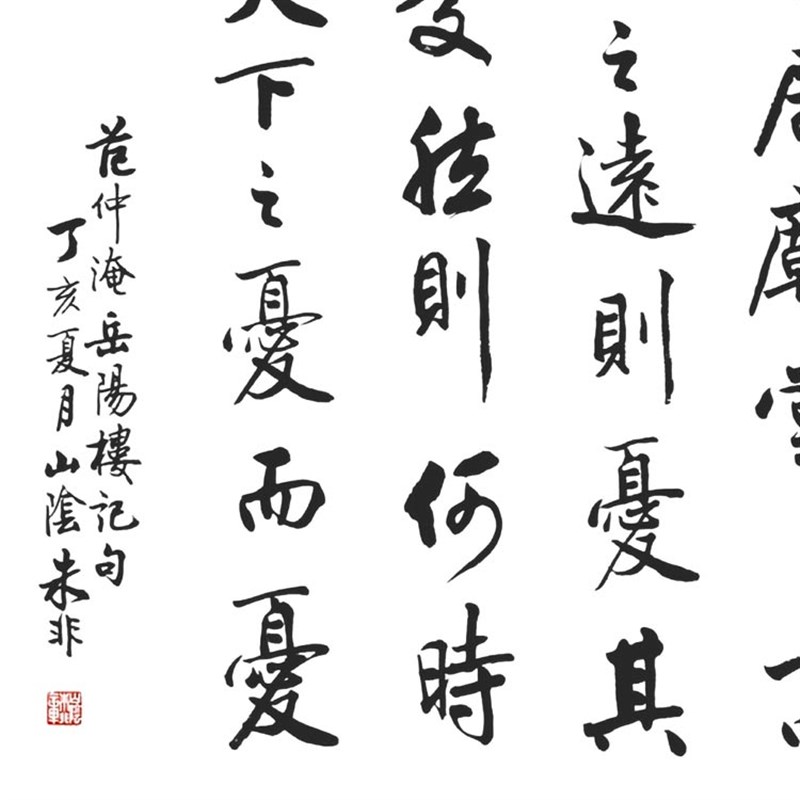 居廟堂
之遠則憂其
憂然則何時
天下之憂而憂
范仲淹岳陽樓記句
丁亥夏月山陰朱非